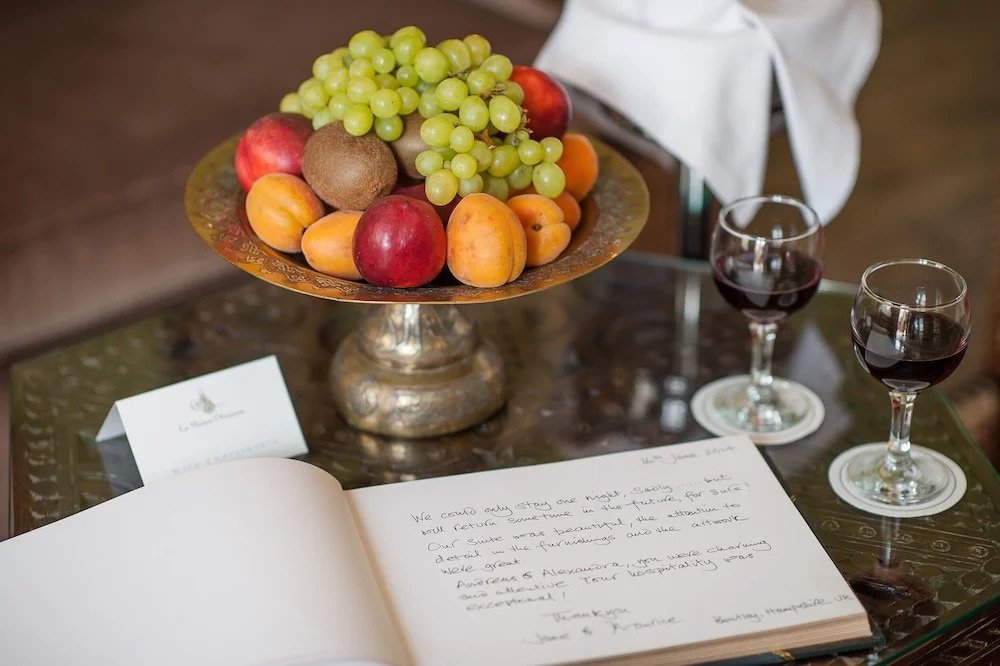 La Maison Ottomane
WITH COMPLIMENTS
16th June 2014
We could only stay one night, Sadly ...... but
will return sometime in the future, for sure!
Our suite was beautiful, the attention to
detail in the furnishings and the artwork
were great.
Andreas & Alexandra, you were charming
and attentive Your hospitality was
exceptional!
Thankyou
Jane & Maurice Bentley, Hampshire UK